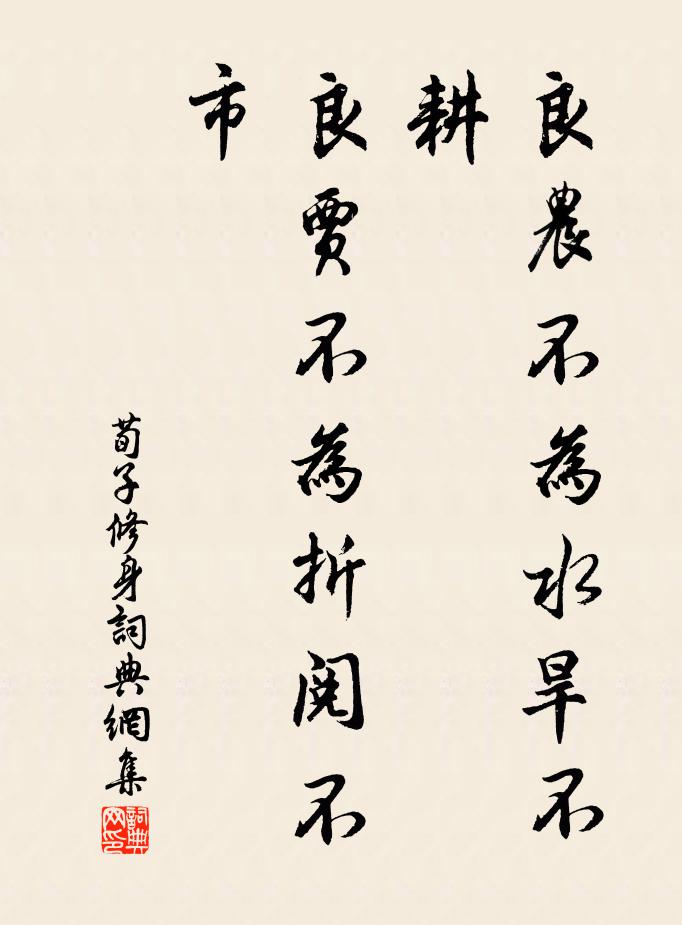 良農不為水旱不
耕
良賈不為折閱不
市
荀子修身詞典網集
詞典网印